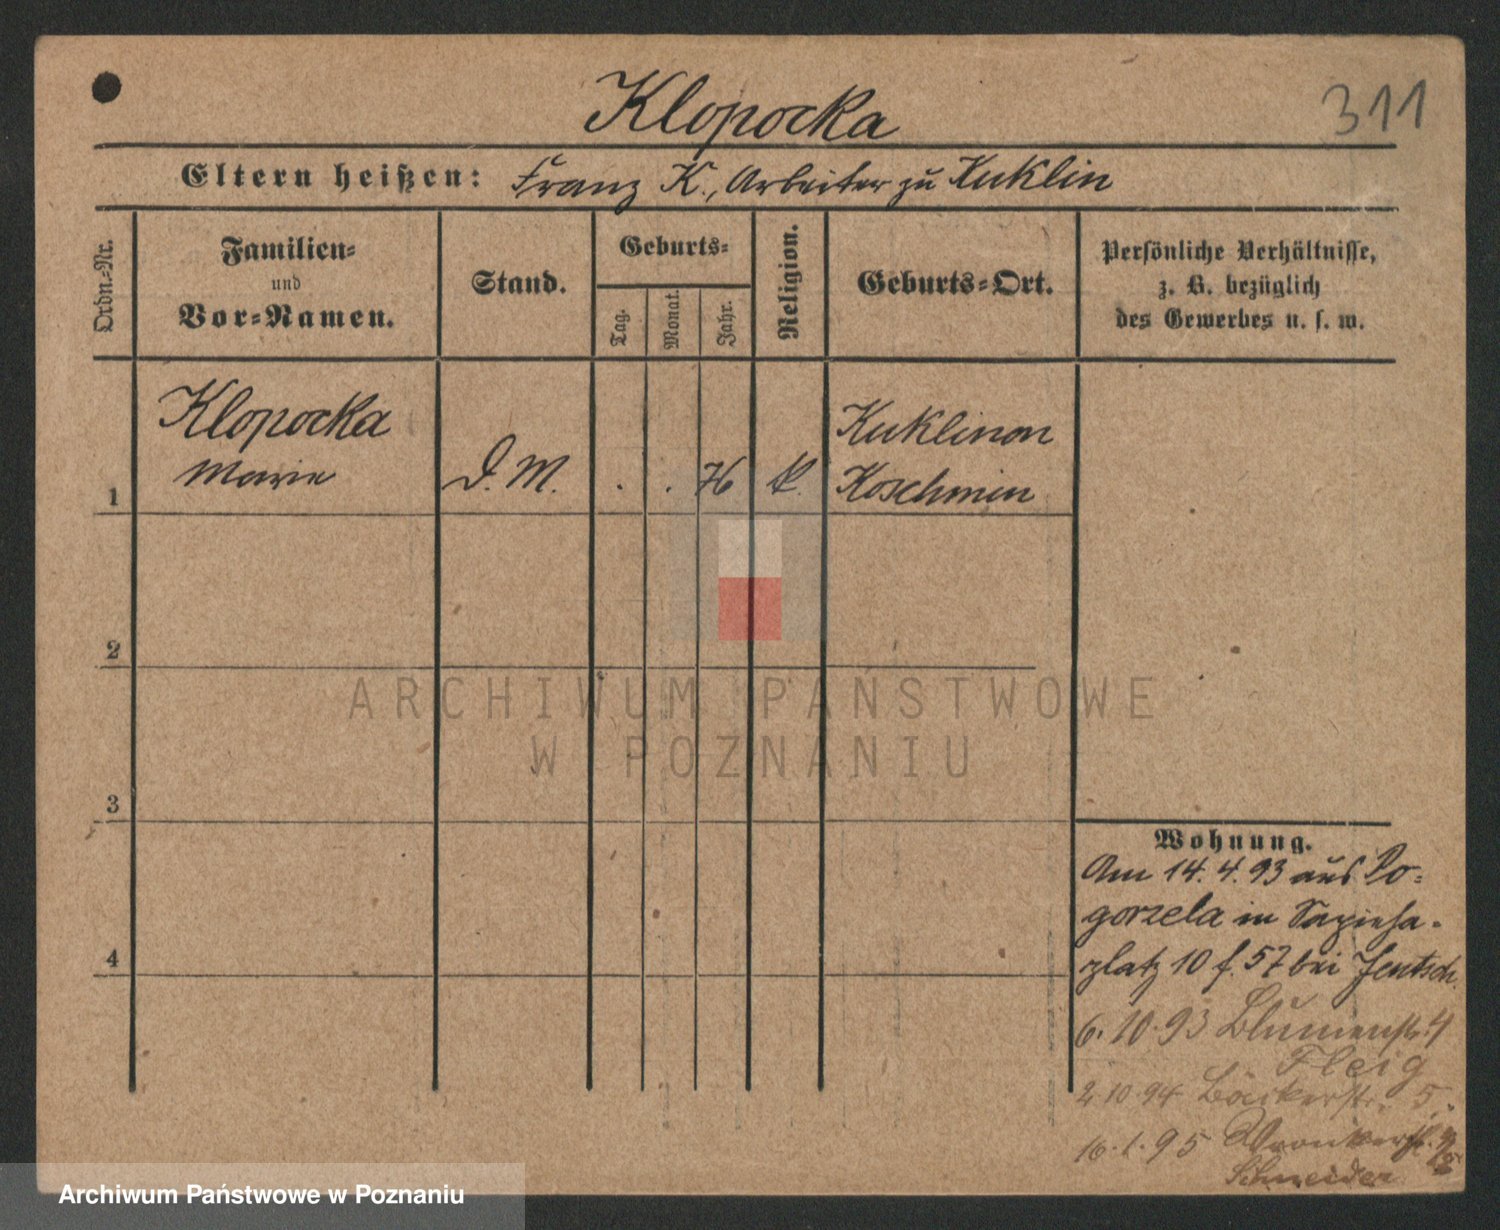 311
Klopocka
Eltern heißen: Franz K., Arbeiter zu Kuklin
Ordn.-Nr.
Familien-
und
Vor-Namen.
Stand.
Geburts-
Tag.
Monat.
Jahr.
Religion.
Geburts-Ort.
Persönliche Verhältnisse,
z. B. bezüglich
des Gewerbes u. s. w.
Klopocka
Marie
1
D. M.
. .
K.
Kuklinow
Koschmin
2
3
4
Wohnung.
Am 14. 4. 93 aus Po-
gorzela in Sapieha-
platz 10 f. 57 bei Jentsch.
6. 10. 93 Blumenstr. 4
Fleig
2. 10. 94 Bäckerstr. 5.
16. 1. 95 Wronkerstr.
Schneider
ARCHIWUM PAŃSTWOWE
W POZNANIU
Archiwum Państwowe w Poznaniu